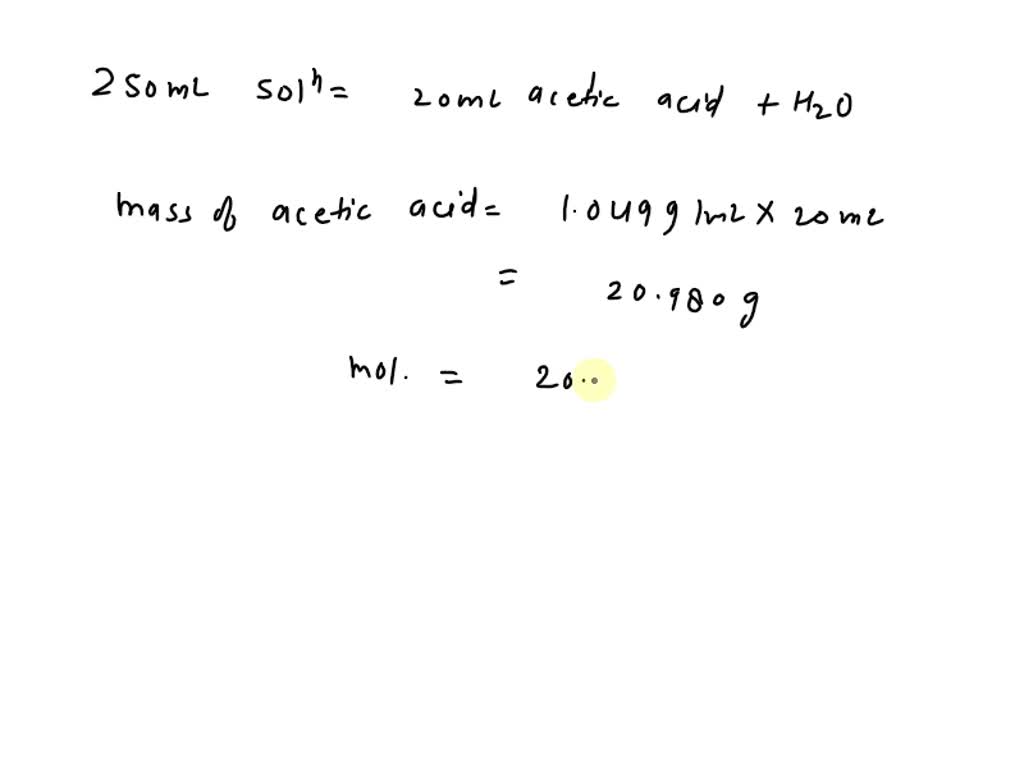 250mL Solⁿ = 20mL acetic acid + H2O
mass of acetic acid = 1.049g/mL X 20mL
= 20.980g
mol. = 20.